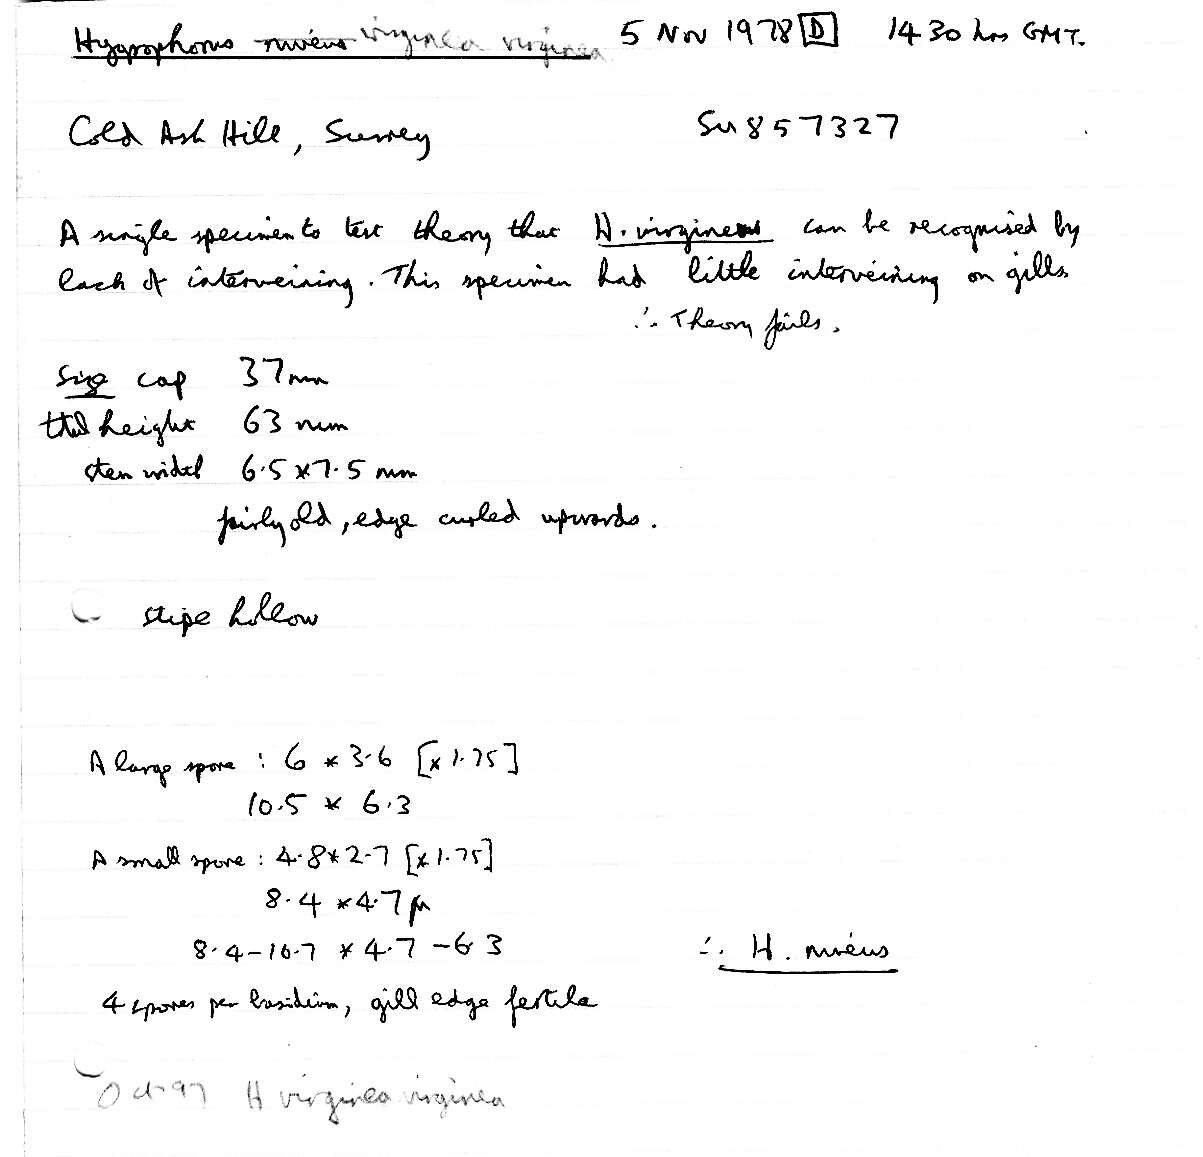 Hygrophorus niveus virginea virginea 5 Nov 1978 D 1430 hrs GMT.
Cold Ash Hill, Surrey SU 857327
A single specimen to test theory that H. virgineus can be recognised by
lack of interveining. This specimen had little interveining on gills
∴ Theory fails.
Size cap 37mm
total height 63 mm
stem width 6.5 × 7.5 mm
fairly old, edge curled upwards.
stipe hollow
A large spore : 6 × 3.6 [× 1.75]
10.5 × 6.3
A small spore : 4.8 × 2.7 [× 1.75]
8.4 × 4.7 μ
8.4 - 10.7 × 4.7 - 6.3
∴ H. niveus
4 spores per basidium, gill edge fertile
Oct 97 H virginea virginea